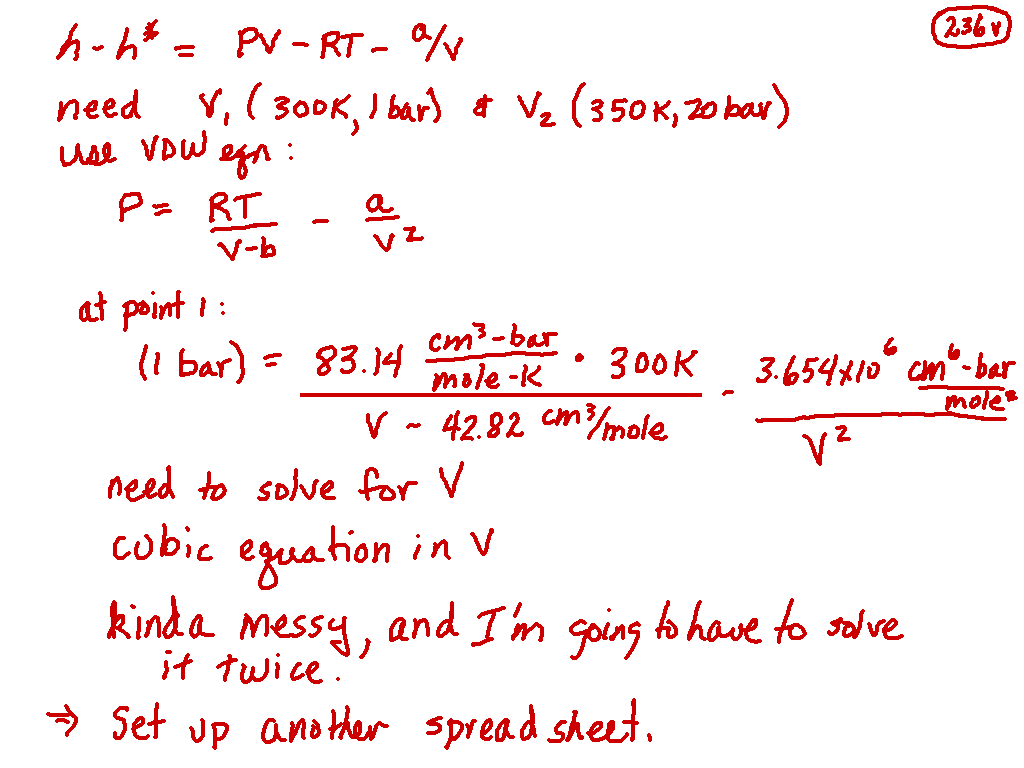 236v
h - h* = PV - RT - a/V
need V₁ (300K, 1 bar) & V₂ (350K, 20 bar)
use VDW eqn:
P = RT/(V-b) - a/V²
at point 1:
(1 bar) = (83.14 cm³-bar/mole-K · 300K)/(V - 42.82 cm³/mole) - (3.654x10⁶ cm⁶-bar/mole²)/V²
need to solve for V
cubic equation in V
kinda messy, and I'm going to have to solve
it twice.
⇒ Set up another spreadsheet.